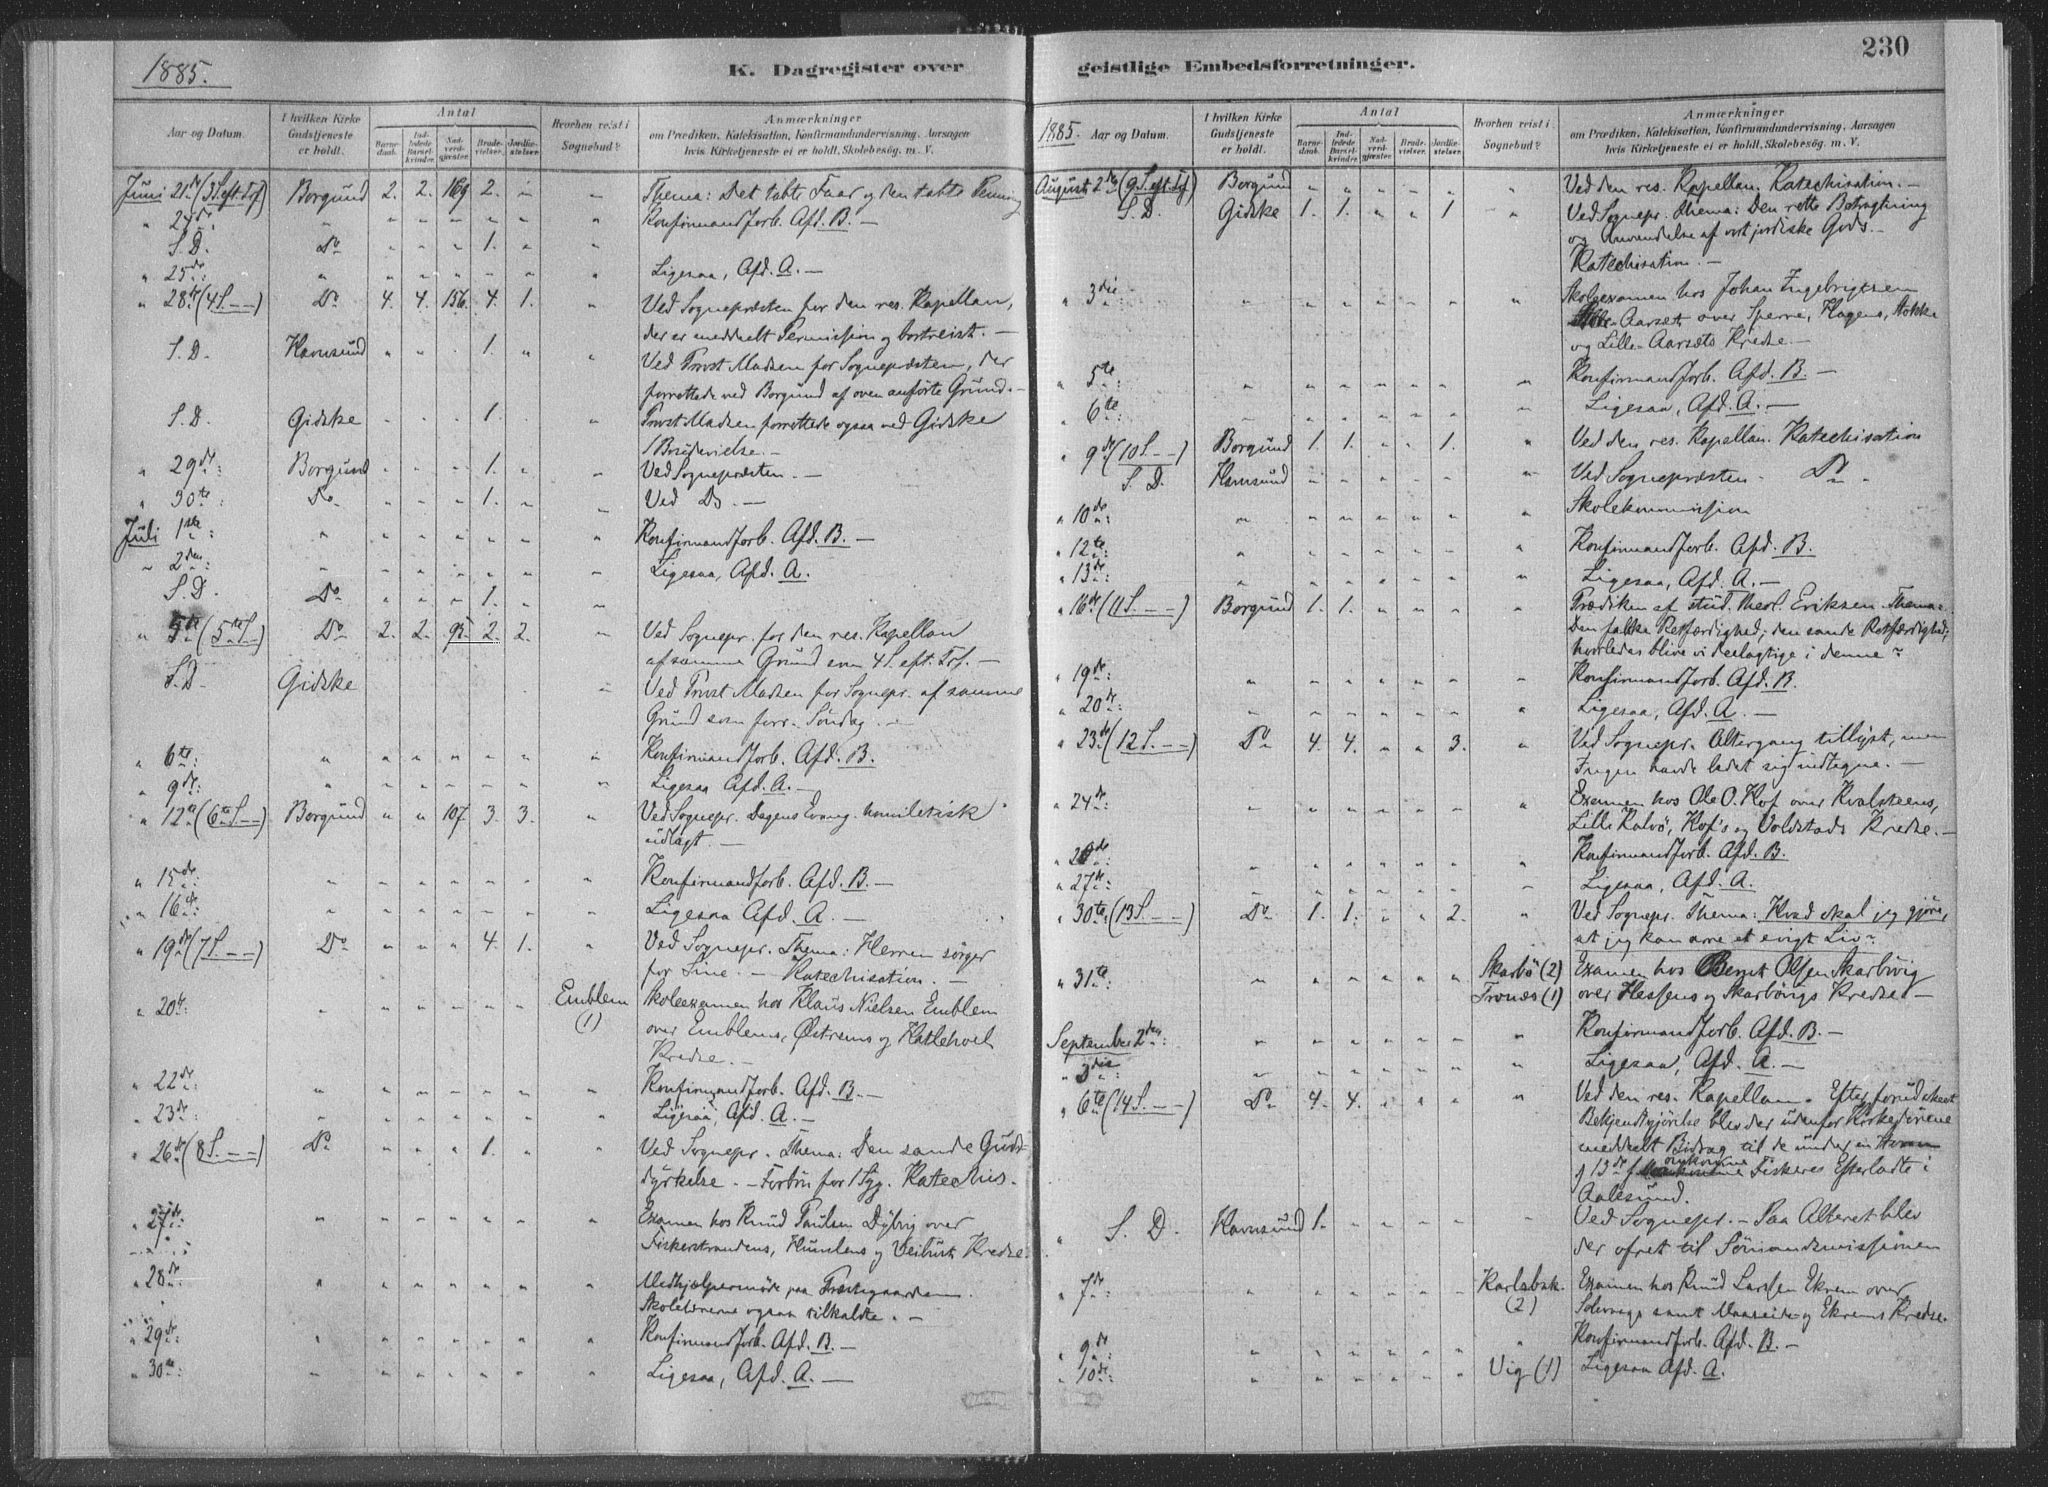 1885.
K. Dagregister over
Aar og Datum. I hvilken Kirke Gudstjeneste er holdt. Antal Barnedaab. Indledede Barselkvinder. Nadverdgjæster. Brudevielser. Jordfæstelser. Hvorhen reist i Sognebud? Anmærkninger om Prædiken, Katekisation, Konfirmandundervisning, Aarsagen hvis Kirketjeneste ei er holdt, Skolebesøg. m. V.
Juni 21de (3 S. eft. Trf) Borgund 2. 2. 169 2. " " Thema: Det tabte Faar og den tabte Penning
" 24de " " " " " " " Konfirmandforb. Afd. B. —
S. D. Do " " " 1. " "
" 25de: " " " " " " " Ligesaa, Afd. A. —
" 28de (4 S. — —) Do 4. 4. 156. 4. 1. " Ved Sognepræsten for den res. Kapellan,
der er meddelt Permission og bortreist. —
S. D. Havnsund " " " 1. " " Ved Provst Madsen for Sognepræsten, der
forrettede ved Borgund af oven anförte Grund. —
S. D. Gidske " " " 1. " Provst Madsen forrettede ogsaa ved Gidske
/Brudevielse. —
" 29de: Borgund " " " 1. " " Ved Sognepræsten. —
" 30te: Do " " " 1. " " Ved Do. —
Juli 1ste: " " " " " " " Konfirmandforb. Afd. B. —
" 2den: " " " " " " " Ligesaa, Afd. A.
S. D. Do " " " 1. " "
" 5te (5te S —) Do 2. 2. 95. 2. 2. " Ved Sognepr. for den res. Kapellan
af samme Grund som 4 S. eft. Trf. —
S. D. Gidske " Ved Provst Madsen for Sognepr. af samme
Grund som forr. Söndag. —
" 6te: " " " " " " " Konfirmandforb. Afd. B.
" 9de: " " " " " " " Ligesaa Afd. A. —
" 12te (6te S — —) Borgund " " 107. 3. 3. " Ved Sognepr. Dagens Evang. homiletisk
udlagt. —
" 15de: " " " " " " " Konfirmandforb. Afd. B. —
" 16de: " " " " " " " Ligesaa Afd. A. —
" 19de (7 S. — —) Do " " " 4. 1. " Ved Sognepr. Thema: Herren sörger
for Sine. — Katechisation. —
" 20de: " " " " " " Emblem (1) Skoleexamen hos Klaus Nielsen Emblem
over Emblems, Østrems og Hatlehoel
Kredse. —
" 22de: " " " " " " " Konfirmandforb. Afd. B. —
" 23de: " " " " " " " Ligesaa, Afd. A. —
" 26de (8 S. — —) Do " " " 1. " " Ved Sognepr. Thema: Den sande Guds-
dyrkelse. — Forbön for 1 Syg. Katechis.
" 27de: " " " " " " " Examen hos Knud Paulsen Dybvig over
Fiskerstrandens, Humlens og Veibust Kredse.
" 28de: " " " " " " " Medhjælpermöde paa Præstegaarden.
Skolelærerne ogsaa tilkaldte. —
" 29de: " " " " " " " Konfirmandforb. Afd. B. —
" 30te: " " " " " " " Ligesaa, Afd. A. —
geistlige Embedsforretninger.
230
1885. Aar og Datum. I hvilken Kirke Gudstjeneste er holdt. Antal Barnedaab. Indledede Barselkvinder. Nadverdgjæster. Brudevielser. Jordfæstelser. Hvorhen reist i Sognebud? Anmærkninger om Prædiken, Katekisation, Konfirmandundervisning, Aarsagen hvis Kirketjeneste ei er holdt, Skolebesøg. m. V.
August 2den (9 S. eft. Trf) Borgund " " " " " " Ved den res. Kapellan. Katechisation. —
S. D. Gidske 1. 1. " " 1 " Ved Sognepr. Thema: Den rette Betragtning
og Anvendelse af vort jordiske Gods. —
Katechisation. —
" 3die: " " " " " " " Skoleexamen hos Johan Ingebrigtsen
Aarset over Sperre, Hagens, Stokke
og Lille-Aarsets Kredse. —
" 5te: " " " " " " " Konfirmandforb. Afd. B. —
" 6te: " " " " " " " Ligesaa, Afd. A. —
" 9de (10 S. — —) Borgund 1. 1. " " 1. " Ved den res. Kapellan. Katechisation
S. D. Havnsund " " " " " " Ved Sognepræsten. Do.
" 10de: " " " " " " " Skolekommission
" 12te: " " " " " " " Konfirmandforb. Afd. B.
" 13de: " " " " " " " Ligesaa, Afd. A. —
" 16de (11 S. — —) Borgund 1. 1. " " " " Prædiken af stud. theol. Eriksen. Thema:
Den falske Retfærdighed; den sande Retfærdighed;
hvorledes blive vi deelagtige i denne?
" 19de: " " " " " " " Konfirmandforb. Afd. B.
" 20de: " " " " " " " Ligesaa, Afd. A. —
" 23de (12 S. — —) Do 4. 4. " " 3. " Ved Sognepr. Altergang tillyst, men
Ingen havde ladet sig indtegne. —
" 24de: " " " " " " " Examen hos Ole O. Hof over Kvalsteens,
Lille Kalvö, Hof's og Voldstads Kredse. —
" 26de: " " " " " " " Konfirmandforb. Afd. B.
" 27de: " " " " " " " Ligesaa, Afd. A.
" 30te (13 S. — —) Do 1. 1. " " 2. " Ved Sognepr. Thema: Hvad skal jeg gjöre,
at jeg kan arve et evigt Liv?
" 31te: " " " " " " Skarbö (2) Examen hos Bernt Olsen Skarbövig
Tronæs (1) over Hessens og Skarbövigs Kredse —
September 2den: " " " " " " " Konfirmandforb. Afd. B. —
" 3die: " " " " " " " Ligesaa, Afd. A. —
" 6te (14 S. — —) Do 4. 4. " " " " Ved den res. Kapellan. Efter forudskeet
Bekjendtgjörelse blev der udenfor Kirkedörene
meddelt Bidrag til de under en
g 13de f. omkomne Fiskeres Efterladte i
Aalesund.
" S. D. Havnsund 1. " " " " " Ved Sognepr. — Paa Alteret blev
der ofret til Sömandsmissionen
" 7de: " " " " " " Karlsbak. (2) Examen hos Knud Larssen Ekrem over
Solevaags samt Maaseide- og Ekrems Kredse.
" 9de: " " " " " " " Konfirmandforb. Afd. B. —
" 10de: " " " " " " Vig (1) Ligesaa Afd. A.